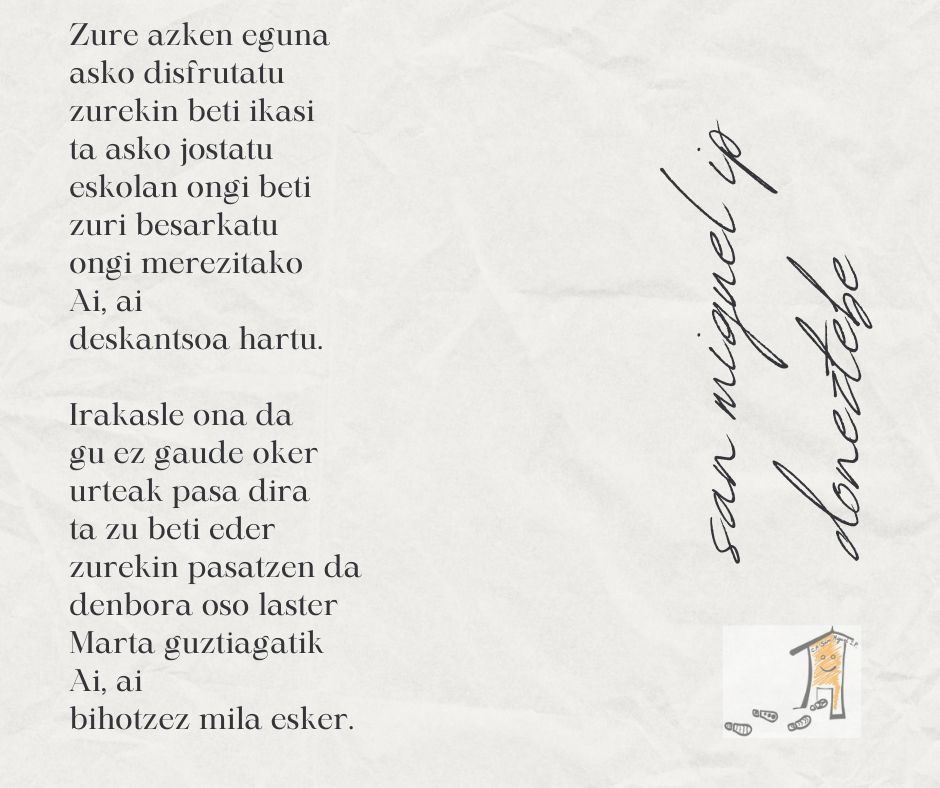 Zure azken eguna
asko disfrutatu
zurekin beti ikasi
ta asko jostatu
eskolan ongi beti
zuri besarkatu
ongi merezitako
Ai, ai
deskantsoa hartu.

Irakasle ona da
gu ez gaude oker
urteak pasa dira
ta zu beti eder
zurekin pasatzen da
denbora oso laster
Marta guztiagatik
Ai, ai
bihotzez mila esker.

san miguel ip
doneztebe